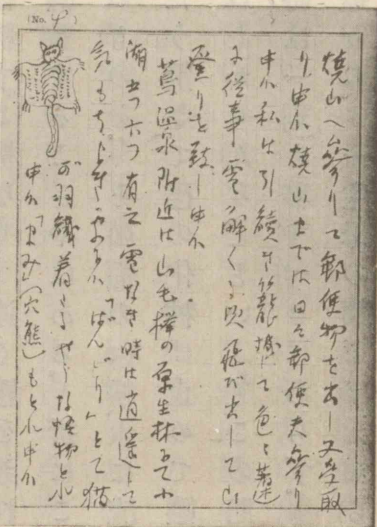 (No. 4)
焼山へ参りて郵便物を出し又受取
り申候 焼山までは日々郵便夫参り
申候 私は引續き籠城にて色々著述
に従事 雪の解くる頃飛び出して山
登りを致し申候
蔦温泉附近は山毛欅の原生林にて小
湖五つ六つ有之 雪なき時は逍遥して
気もちよきところに候「ばんどり」とて猫
が羽織着たるやうな怪物とれ
申候「まみ」(穴熊)もとれ申候